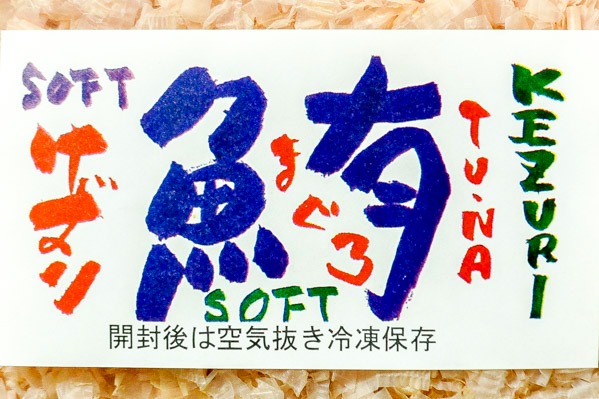 SOFT
けずり
鮪
まぐろ
SOFT
TUNA
KEZURI
開封後は空気抜き冷凍保存